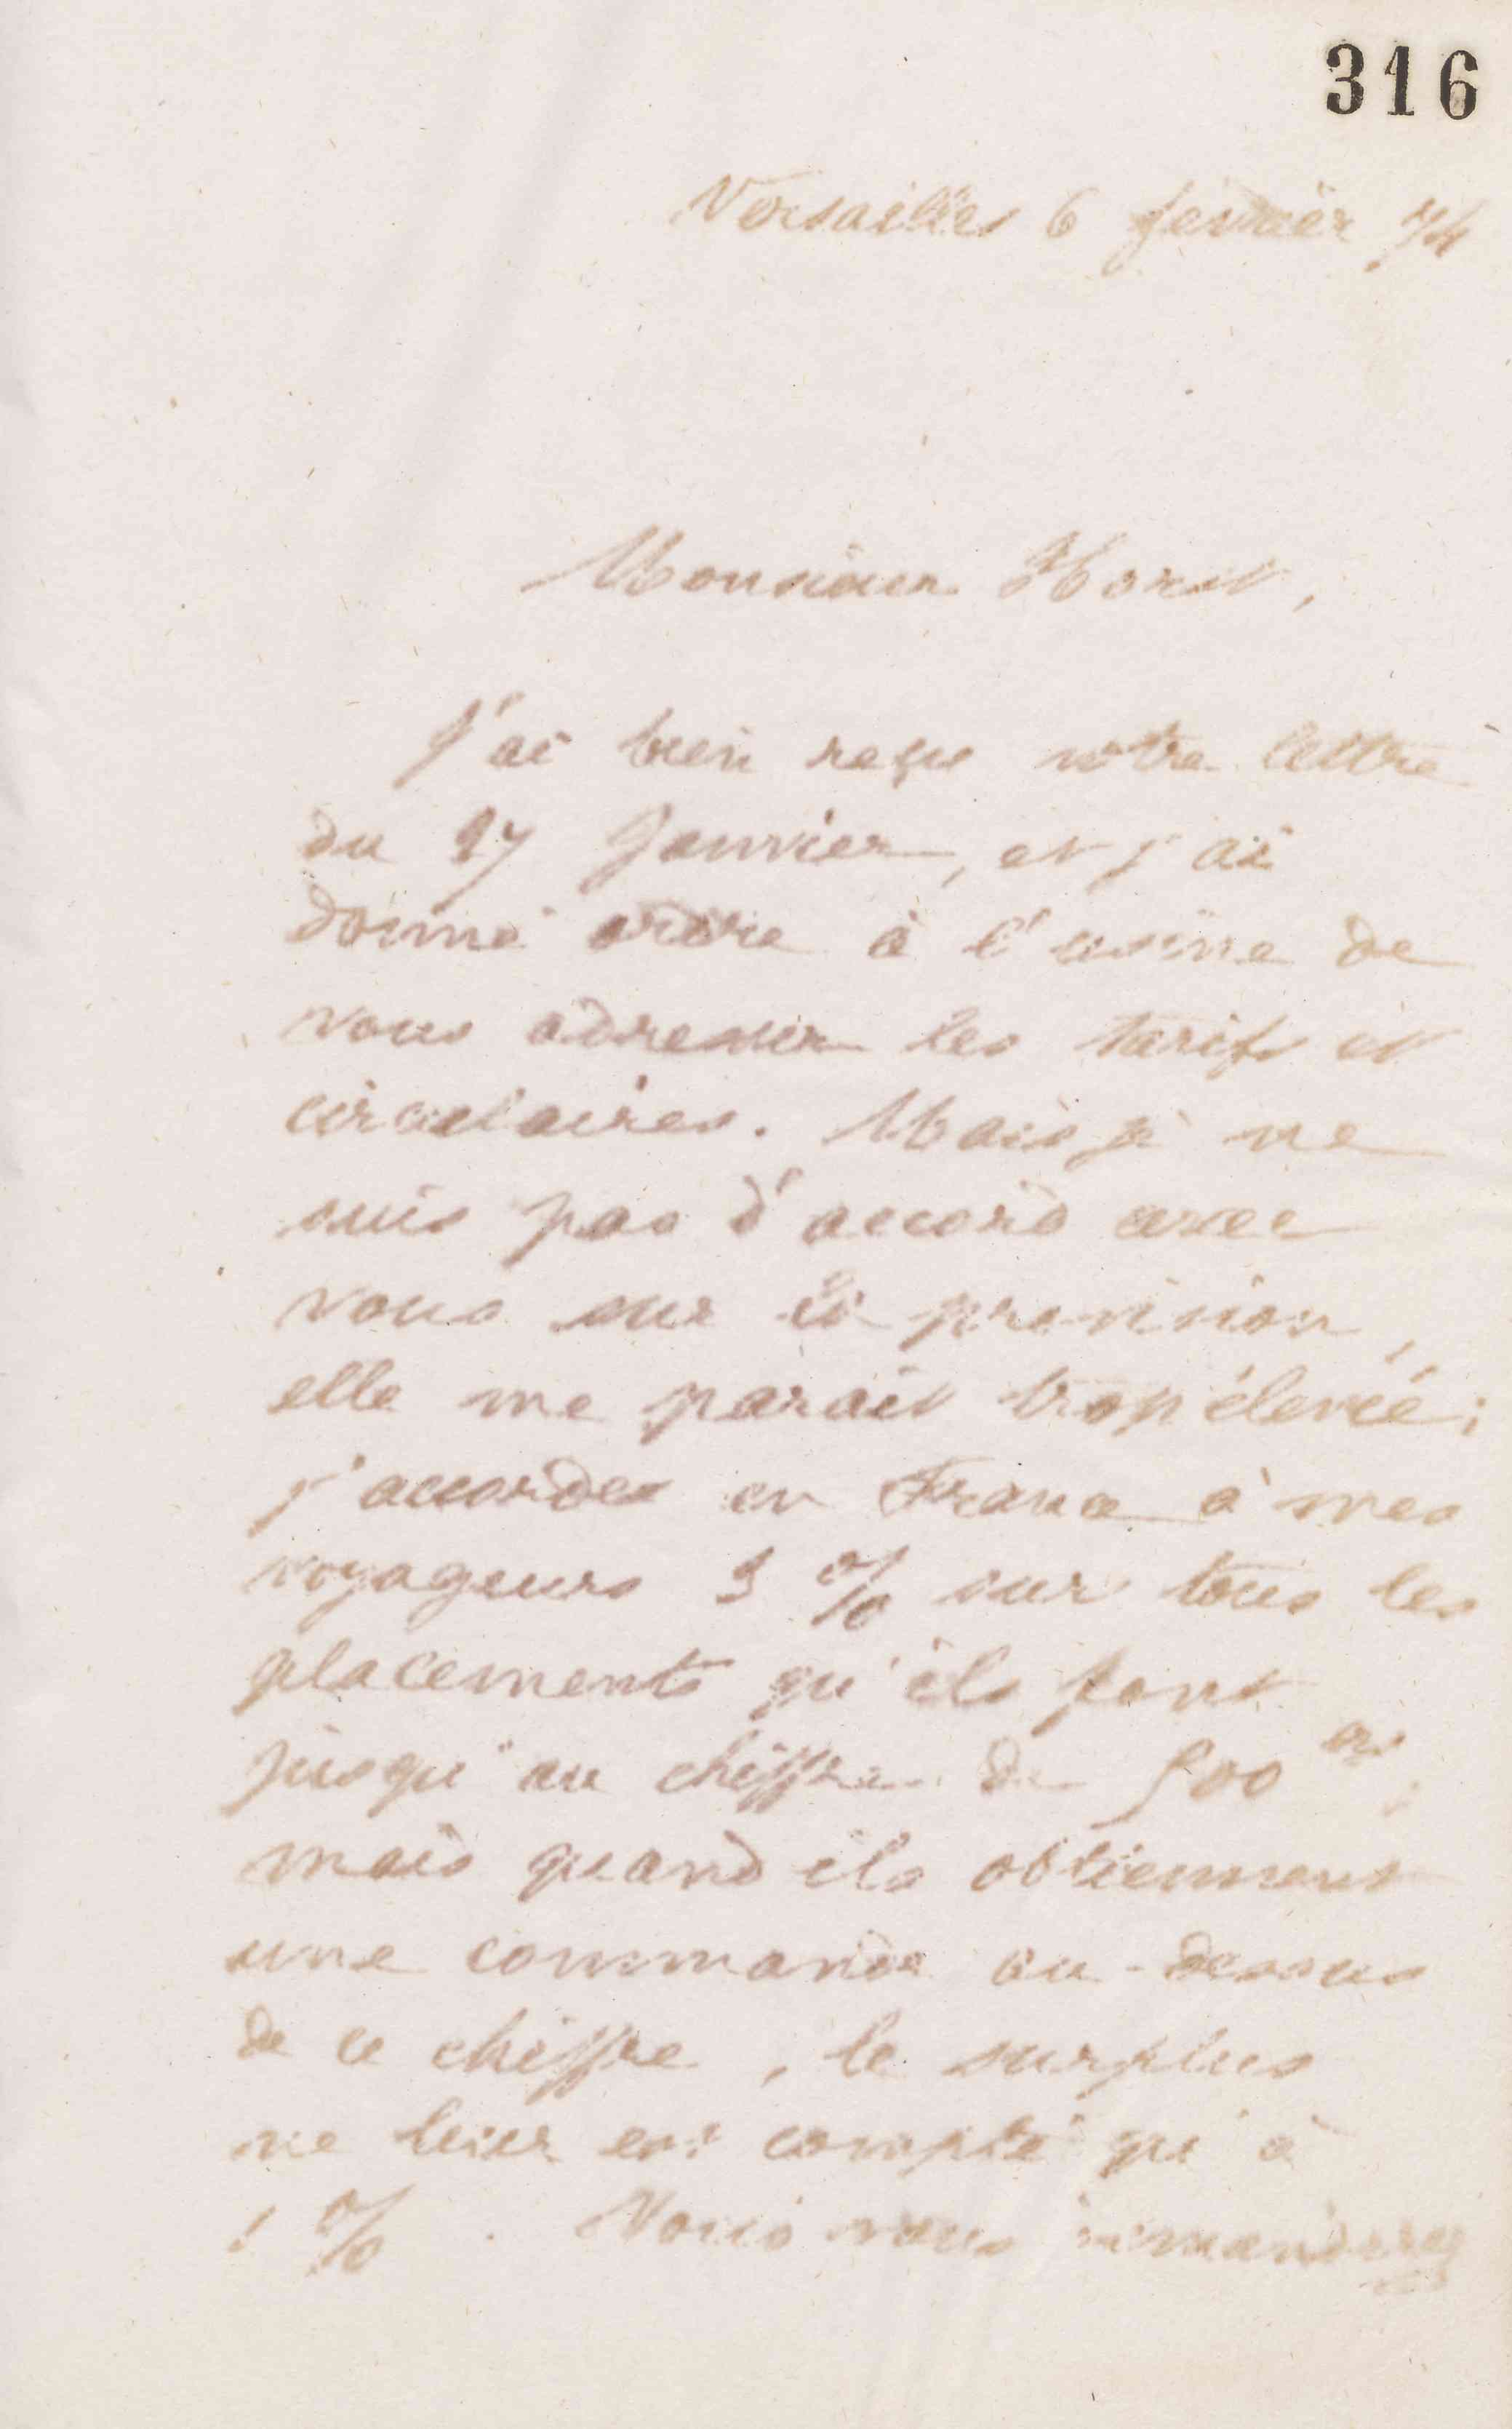 316
Versailles 6 février 74
Monsieur Horst,
J'ai bien reçu votre lettre
du 27 Janvier, et j'ai
donné ordre à l'usine de
vous adresser les tarifs et
circulaires. Mais je ne
suis pas d'accord avec
vous sur la provision,
elle me parait trop élevée;
j'accorde en France à mes
voyageurs 3 % sur tous les
placements qu'ils font
jusqu'au chiffre de 500
mais quand ils obtiennent
une commande au-dessus
de ce chiffre, le surplus
ne leur est compté qu'à
1 %. Vous